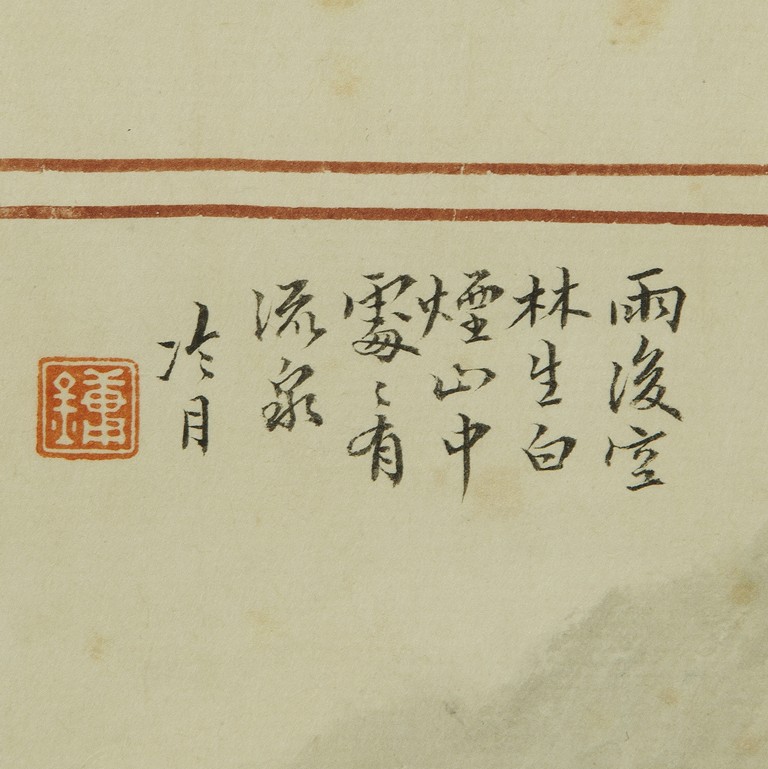 雨後空
林生白
煙山中
處〻有
流泉
冷月
鏞